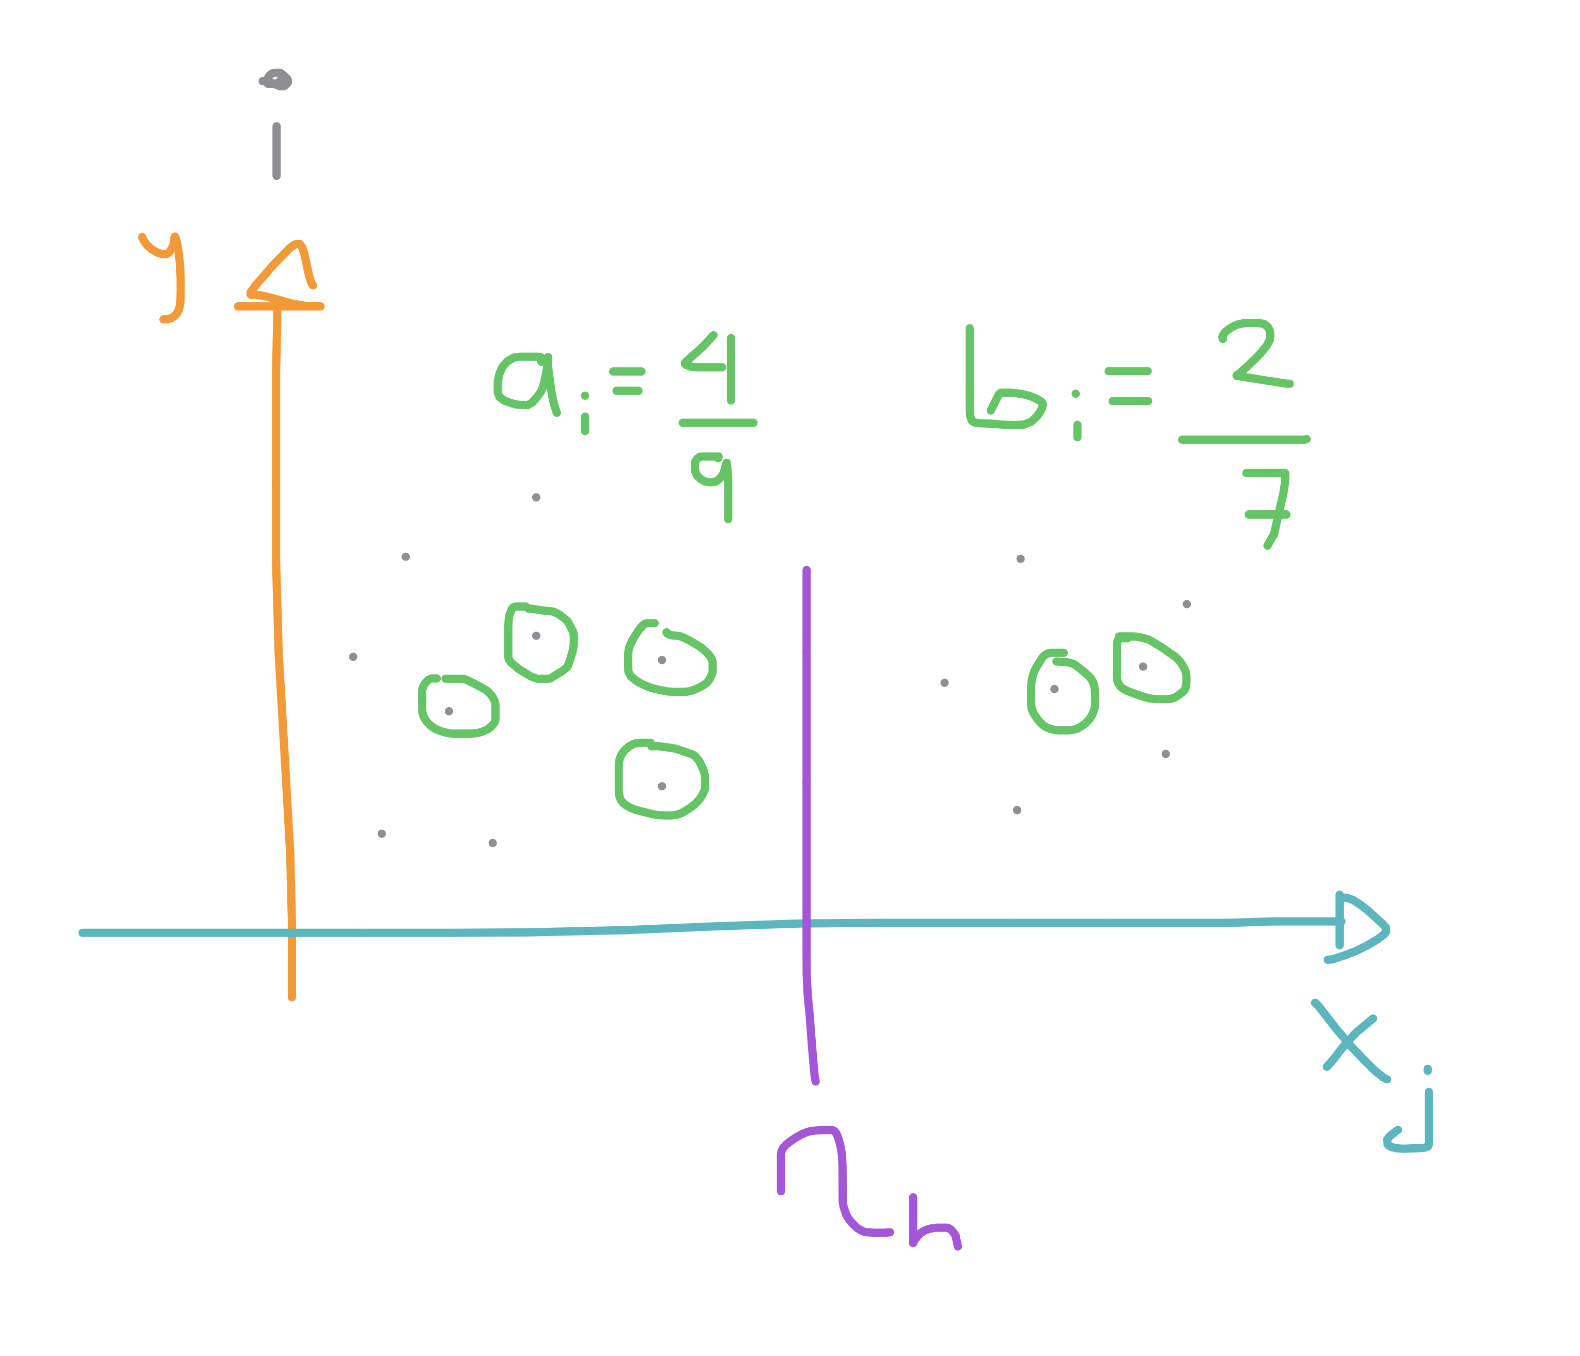 i
y
aᵢ = 4/9
bᵢ = 2/7
xⱼ
h